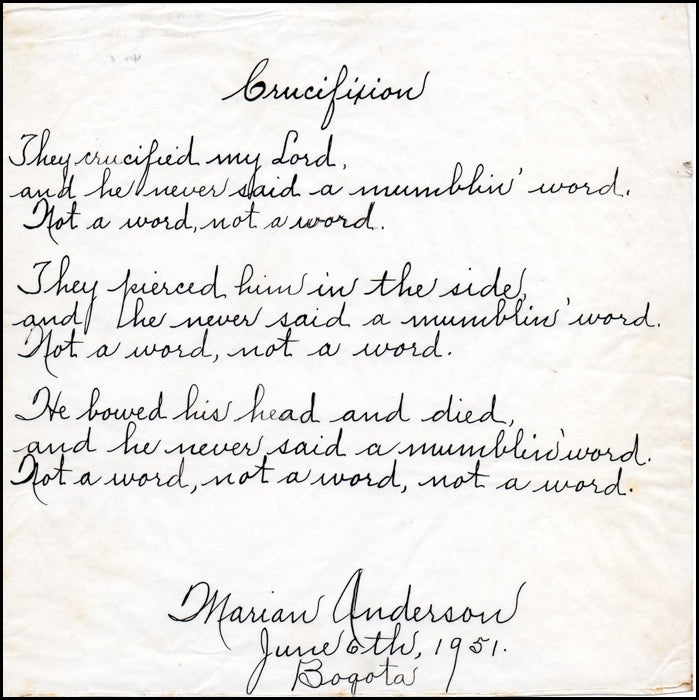 Crucifixion
They crucified my Lord,
and he never said a mumblin' word.
Not a word, not a word.
They pierced him in the side,
and he never said a mumblin' word.
Not a word, not a word.
He bowed his head and died,
and he never said a mumblin' word.
Not a word, not a word, not a word.
Marian Anderson
June 6th, 1951.
Bogota